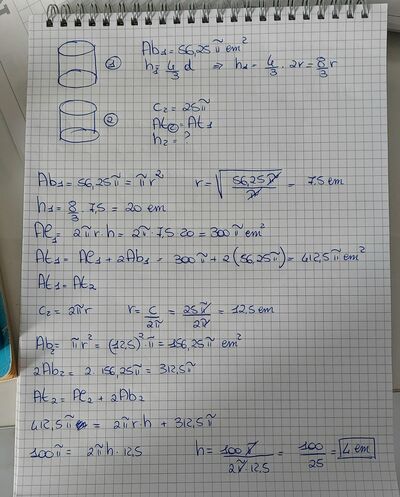 ① Ab₁ = 56,25π cm²
h₁ = 4/3 d ⇒ h₁ = 4/3 · 2r = 8/3 r
② C₂ = 25π
At₂ = At₁
h₂ = ?
Ab₁ = 56,25π = πr² r = √(56,25π/π) = 7.5 cm
h₁ = 8/3 · 7,5 = 20 cm
Al₁ = 2πr·h = 2π·7,5·20 = 300π cm²
At₁ = Al₁ + 2Ab₁ = 300π + 2(56,25π) = 412,5π cm²
At₁ = At₂
C₂ = 2πr r = C/2π = 25π/2π = 12,5 cm
Ab₂ = πr² = (12,5)²·π = 156,25π cm²
2Ab₂ = 2·156,25π = 312,5π
At₂ = Al₂ + 2Ab₂
412,5π = 2πr·h + 312,5π
100π = 2πh·12,5 h = 100π/2π·12,5 = 100/25 = 4 cm